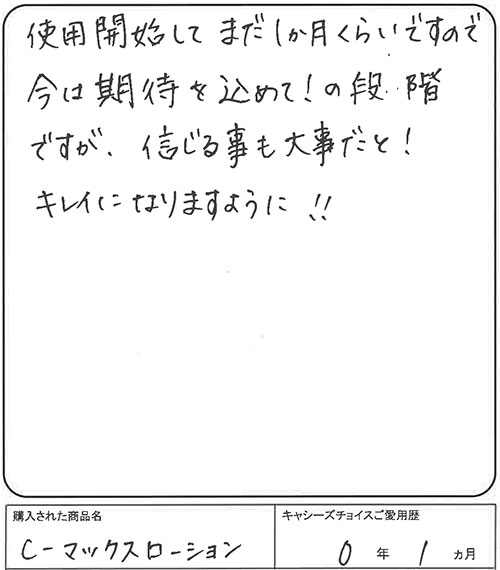 使用開始してまだ1か月くらいですので
今は期待を込めて!の段階
ですが、信じる事も大事だと!
キレイになりますように!!
購入された商品名
キャシーズチョイスご愛用歴
C-マックスローション
0年1ヵ月